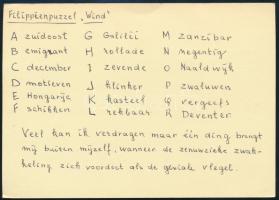 Filippienpuzzel „Wind”
A zuidoost G Galilii M Zanzibar
B emigrant H rollade N negentig
C december I zevende O Naaldwijk
D motieven J klinker P zwaluwen
E Hongarije K kasteel Q vergeefs
F schikken L rekbaar R Deventer
Veel kan ik verdragen maar één ding brengt
mij buiten mijzelf, wanneer de zenuwzieke zwak-
keling zich voordoet als de geniale vlegel.